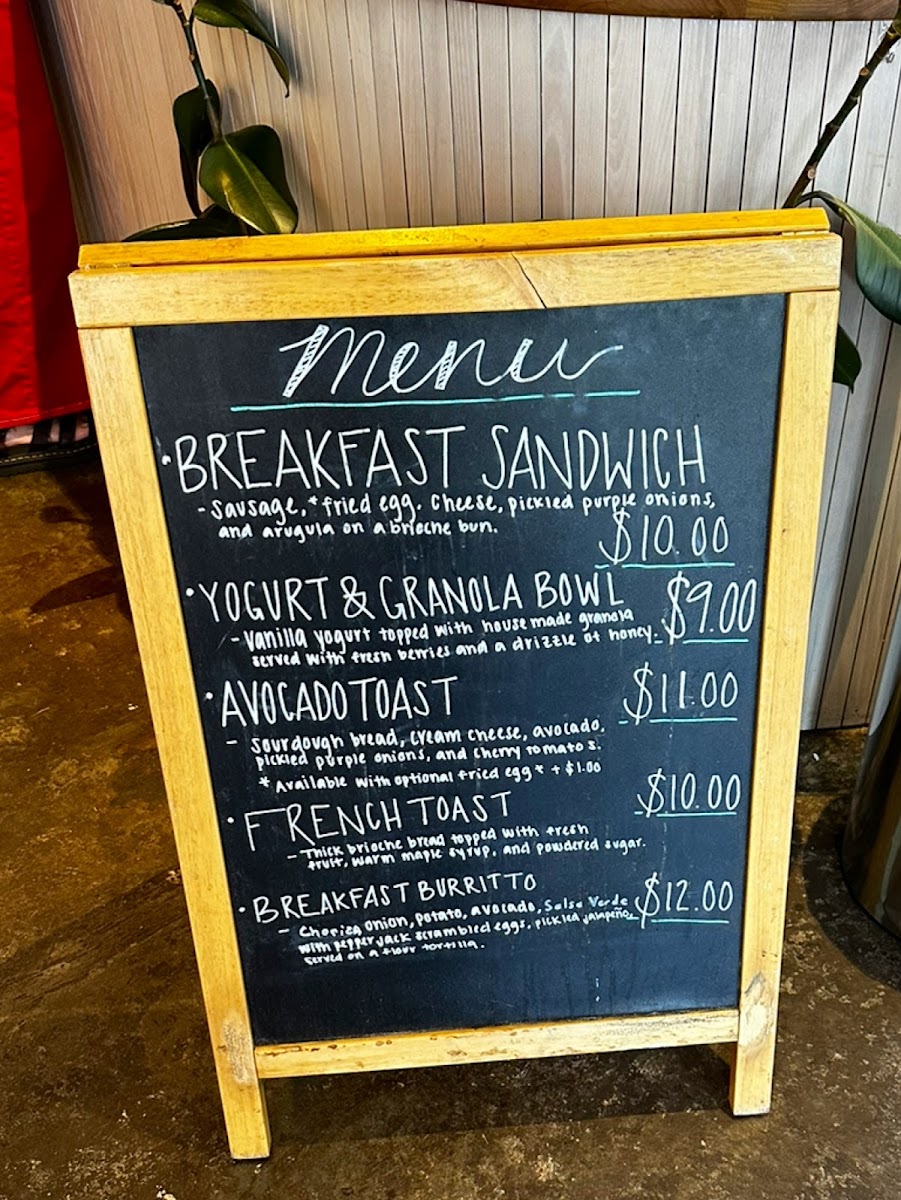 Menu
• BREAKFAST SANDWICH
- Sausage, * fried egg, Cheese, pickled purple onions,
and arugula on a brioche bun.
$10.00
• YOGURT & GRANOLA BOWL $9.00
- Vanilla yogurt topped with house made granola
served with fresh berries and a drizzle of honey.
• AVOCADO TOAST $11.00
- Sourdough bread, cream cheese, avocado,
pickled purple onions, and cherry tomatos.
* Available with optional fried egg * + $1.00
• FRENCH TOAST $10.00
- Thick brioche bread topped with fresh
fruit, warm maple syrup, and powdered sugar.
• BREAKFAST BURRITTO $12.00
- Chorizo, onion, potato, avocado, Salsa Verde
with pepper jack scrambled eggs, pickled jalapeño,
served on a flour tortilla.